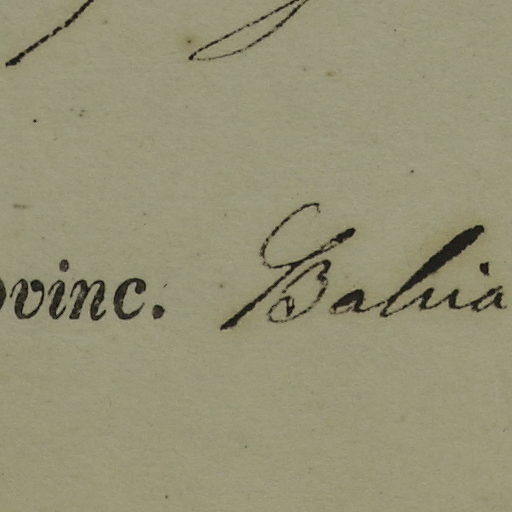 ovinc. Bahia